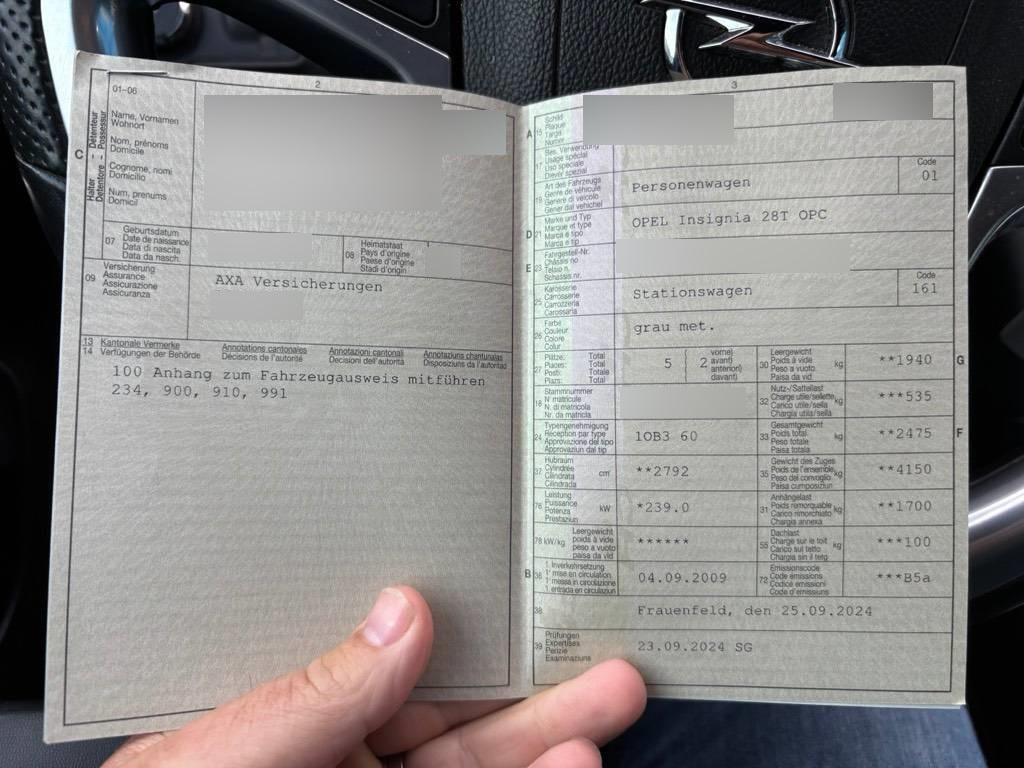 2
01-06
C
Halter - Détenteur
Detentore - Possessur
Name, Vornamen
Wohnort
Nom, prénoms
Domicile
Cognome, nomi
Domicilio
Num, prenums
Domicil
07
Geburtsdatum
Date de naissance
Data di nascita
Data da nasch.
08
Heimatstaat
Pays d'origine
Paese d'origine
Stadi d'origin
09
Versicherung
Assurance
Assicurazione
Assicuranza
AXA Versicherungen
13 Kantonale Vermerke Annotations cantonales Annotazioni cantonali Annotaziuns chantunalas
14 Verfügungen der Behörde Décisions de l'autorité Decisioni dell'autorità Disposiziuns da l'autoritad
100 Anhang zum Fahrzeugausweis mitführen
234, 900, 910, 991
3
A
15
Schild
Plaque
Targa
Numer
17
Bes. Verwendung
Usage spécial
Uso speciale
Diever spezial
19
Art des Fahrzeugs
Genre de véhicule
Genere di veicolo
Gener dal vehichel
Personenwagen
Code
01
D
21
Marke und Typ
Marque et type
Marca e tipo
Marca e tip
OPEL Insignia 28T OPC
E
23
Fahrgestell-Nr.
Châssis no
Telaio n.
Schassis nr.
25
Karosserie
Carrosserie
Carrozzeria
Carossaria
Stationswagen
Code
161
26
Farbe
Couleur
Colore
Colur
grau met.
27
Plätze: Total
Places: Total
Posti: Totale
Plazs: Total
5 ( 2
vorne)
avant)
anteriori)
davant)
30
Leergewicht
Poids à vide
Peso a vuoto
Paisa da vid
kg
**1940
G
18
Stammnummer
N° matricule
N. di matricola
Nr. da matricla
32
Nutz-/Sattellast
Charge utile/sellette
Carico utile/sella
Chargia utila/sella
kg
***535
24
Typengenehmigung
Réception par type
Approvazione del tipo
Approvaziun dal tip
1OB3 60
33
Gesamtgewicht
Poids total
Peso totale
Paisa totala
kg
**2475
F
37
Hubraum
Cylindrée
Cilindrata
Cilindrada
cm³
**2792
35
Gewicht des Zuges
Poids de l'ensemble
Peso del convoglio
Paisa cumposiziun
kg
**4150
76
Leistung
Puissance
Potenza
Prestaziun
kW
*239.0
31
Anhängelast
Poids remorquable
Carico rimorchiato
Chargia annexa
kg
**1700
78 kW/kg
Leergewicht
poids à vide
peso a vuoto
paisa da vid
******
55
Dachlast
Charge sur le toit
Carico sul tetto
Chargia sin il tetg
kg
***100
B
36
1. Inverkehrsetzung
1re mise en circulation
1a messa in circolazione
1. entrada en circulaziun
04.09.2009
72
Emissionscode
Code émissions
Codice emissioni
Code d'emissiuns
***B5a
38
Frauenfeld, den 25.09.2024
39
Prüfungen
Expertises
Perizie
Examinaziuns
23.09.2024 SG